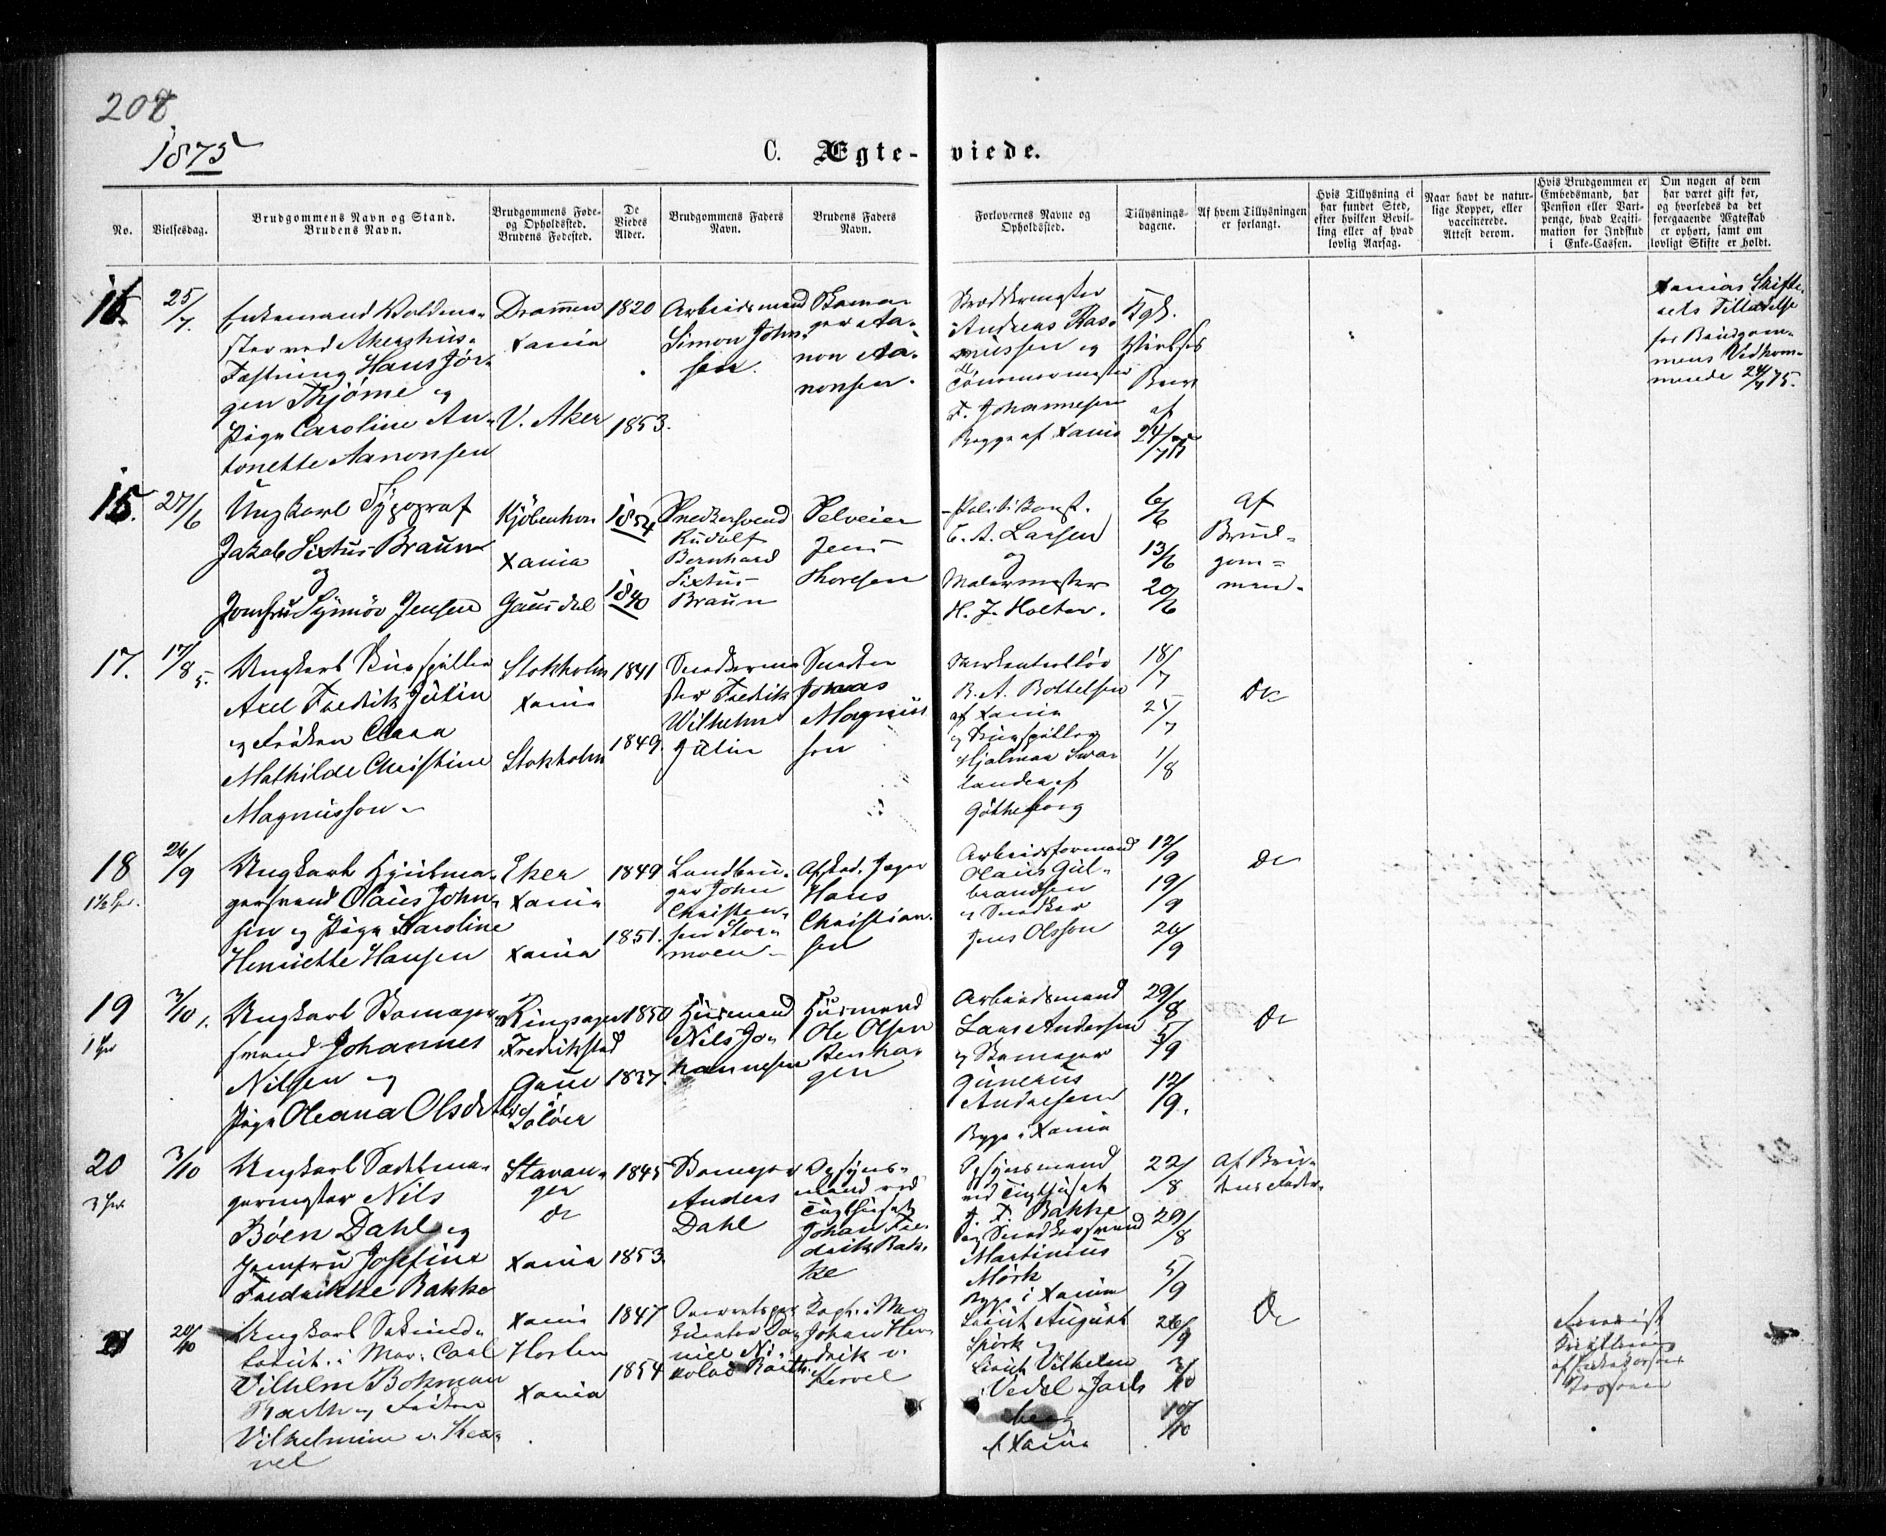 208
1875
C. Ægte-viede.
No.
Vielsesdag.
Brudgommens Navn og Stand.
Brudens Navn.
Brudgommens Føde-
og Opholdssted.
Brudens Fødested.
De
Viedes
Alder.
Brudgommens Faders
Navn.
Brudens Faders
Navn.
Forlovernes Navne og
Opholdssted.
Tillysnings-
dagene.
Af hvem Tillysningen
er forlangt.
Hvis Tillysning ei
har fundet Sted,
efter hvilken Bevil-
ling eller af hvad
lovlig Aarsag.
Naar havt de natur-
lige Kopper, eller
vaccinerede.
Attest derom.
Hvis Brudgommen er
Embedsmand, har
Pension eller Vart-
penge, hvad Legiti-
mation for Indskud
i Enke-Cassen.
Om nogen af dem
har været gift før,
og hvorledes da det
foregaaende Ægteskab
er ophørt, samt om
lovligt Skifte er holdt.
16.
25/7.
Enkemand
ster ved Akershus
Fæstning Hans Jør-
gen Thjøme og
Pige Caroline An-
tonette Aanonsen
Drammen
Xania
V. Aker
1820
1853.
Arbeidsmand
Simon John-
sen.
Skoma-
ger Aa-
non Aa-
nonsen.
Skræddermester
Andreas Ras-
mussen og
Tømmermester
F. Johannesen
Begge af Xania
Kgl.
Vielses
Brev
af
24/7 75
Xanias Skifte-
rets Tilladelse
for Brudgom-
mens Vedkom-
mende 24/7 75.
15.
27/6
Ungkarl Typograf
Jakob Sixtus Braun
og
Jomfru Synnöv Jensen
Kjöbenhavn
Xania
Gausdal
1854
1840
Snedkersvend
Rudolf
Bernhard
Sixtus
Braun
Selveier
Jens
Thoresen
Politikonst.
C. A. Larsen
og
Malermester
H. J. Holter.
6/6
13/6
20/6
Af
Brud-
gom-
men.
17.
17/8
5.
Ungkarl
Axel Fredrik Julin
og Frøken Clara
Mathilde Christine
Magnusson
Stokholm
Xania
Stokholm
1841
1849.
Snedkerme-
ster Fredrik
Wilhelm
Julin
Snedker
Jonas
Magnus
son
B. A. Bottelsen
af Xania
og Skuespiller
Hjalmar Swa-
lander af
Götheborg
18/7
25/7
1/8
Do
18
26/9
Ungkarl Hjulma-
gersvend Olaus John-
sen og Pige Karoline
Henriette Hansen
Eker
Xania
Xania
1849
1851.
Landbru-
ger John
Christen-
sen Stor-
moen
Afsked. Jæger
Hans
Christian-
sen
Arbeidsformand
Olaus Gul-
brandsen
og Snedker
Jens Olsson
12/9
19/9
26/9
Do
19
3/10.
Ungkarl Skomager-
svend Johannes
Nilsen og
Pige Oleana Olsdatter
Ringsager
Fredrikstad
Grue
Solöer
1850
1837.
Husmand
Nils Jo-
hannesen
Husmand
Ole Olsen
Arbeidsmand
Lars Andersen
og Skomager
Gunerius
Andresen
Begge i Xania
29/8
5/9
12/9.
Do
20
3/10
Ungkarl Sadelma-
germester Nils
Böen Dahl og
Jomfru Josefine
Fredrikke Bakke
Stavan-
ger
do
Xania
1845
1853.
Skomager
Anders
Dahl
Opsyns-
mand ved
Tugthuset
Johan Fre-
drik Bak-
ke
Opsynsmand
ved Tugthuset
J. F. Bakke
og Snedkersvend
Martinius
Mörk
Begge i Xania
22/8
29/8
5/9
Af Bru-
dens Fader
21
20/10
Ungkarl Sekond-
Løitn. i Mar. Carl
Vilhelm Bokman
Barth og Frøken
Vilhelmine v. Ker-
vel
Xania
Horten
Xania
1847
1854
niel Ni-
kolai Barth
Johan Hen-
drik v.
Kervel
Löitn August
Spörk
Löitn Vilhelm
Vedel Jarls
berg
af Xania
26/9
3/10
10/10
Do